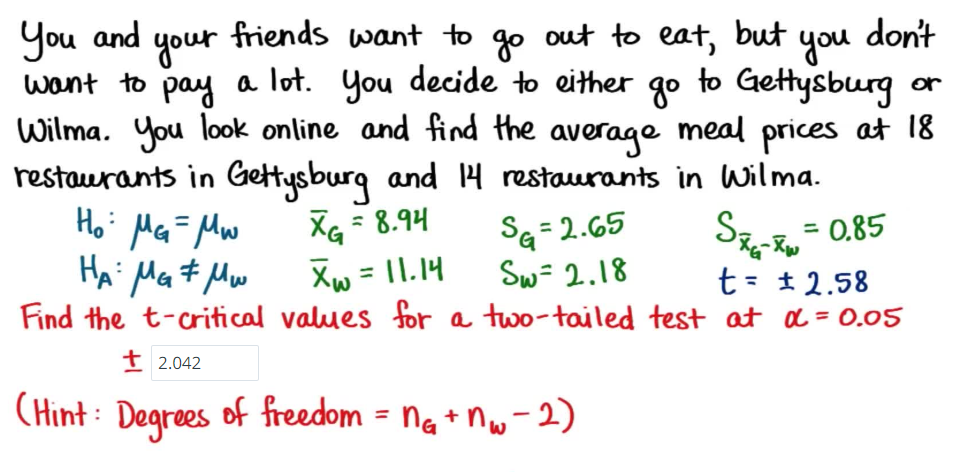 You and your friends want to go out to eat, but you don't
want to pay a lot. You decide to either go to Gettysburg or
Wilma. You look online and find the average meal prices at 18
restaurants in Gettysburg and 14 restaurants in Wilma.
H₀: μ_G = μ_W x̄_G = 8.94 S_G = 2.65 S_x̄_G-x̄_W = 0.85
H_A: μ_G ≠ μ_W x̄_W = 11.14 S_W = 2.18 t = ± 2.58
Find the t-critical values for a two-tailed test at α = 0.05
± 2.042
(Hint: Degrees of freedom = n_G + n_W - 2)